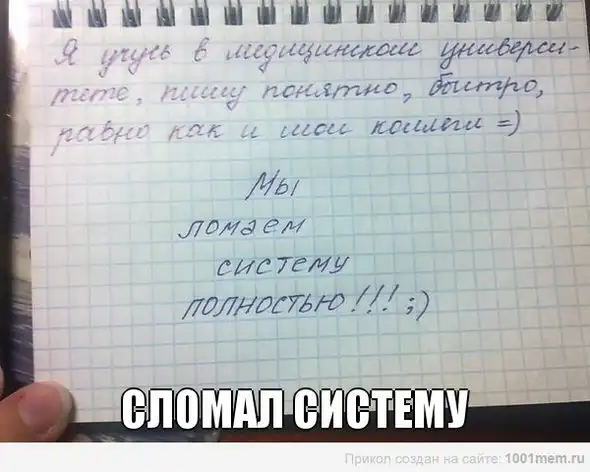 Я учусь в медицинском универси-
тете, пишу понятно, быстро,
равно как и мои коллеги =)
Мы
ломаем
систему
полностью!!! ;)
СЛОМАЛ СИСТЕМУ
Прикол создан на сайте: 1001mem.ru